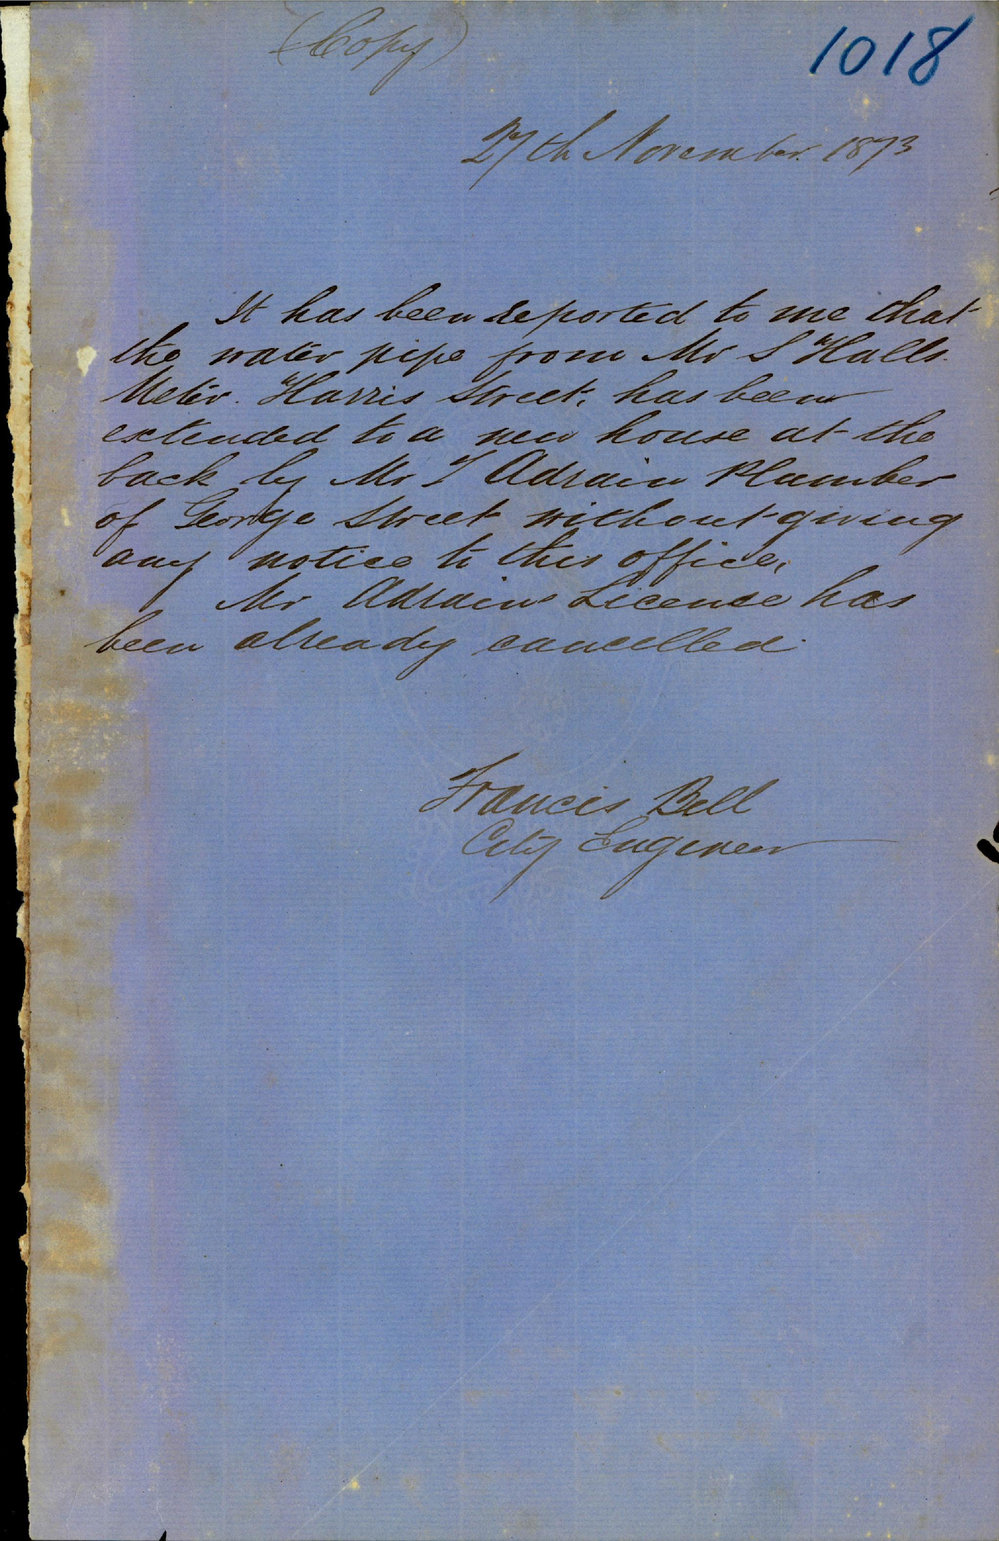 (Copy)
1018
27th November 1873
It has been reported to me that
the water pipe from Mr S Halls
Meter. Harris Street, has been
extended to a new house at the
back by Mr T Adrain Plumber
of George Street without giving
any notice to this office,
Mr Adrains License has
been already cancelled.
Francis Bell
City Engineer